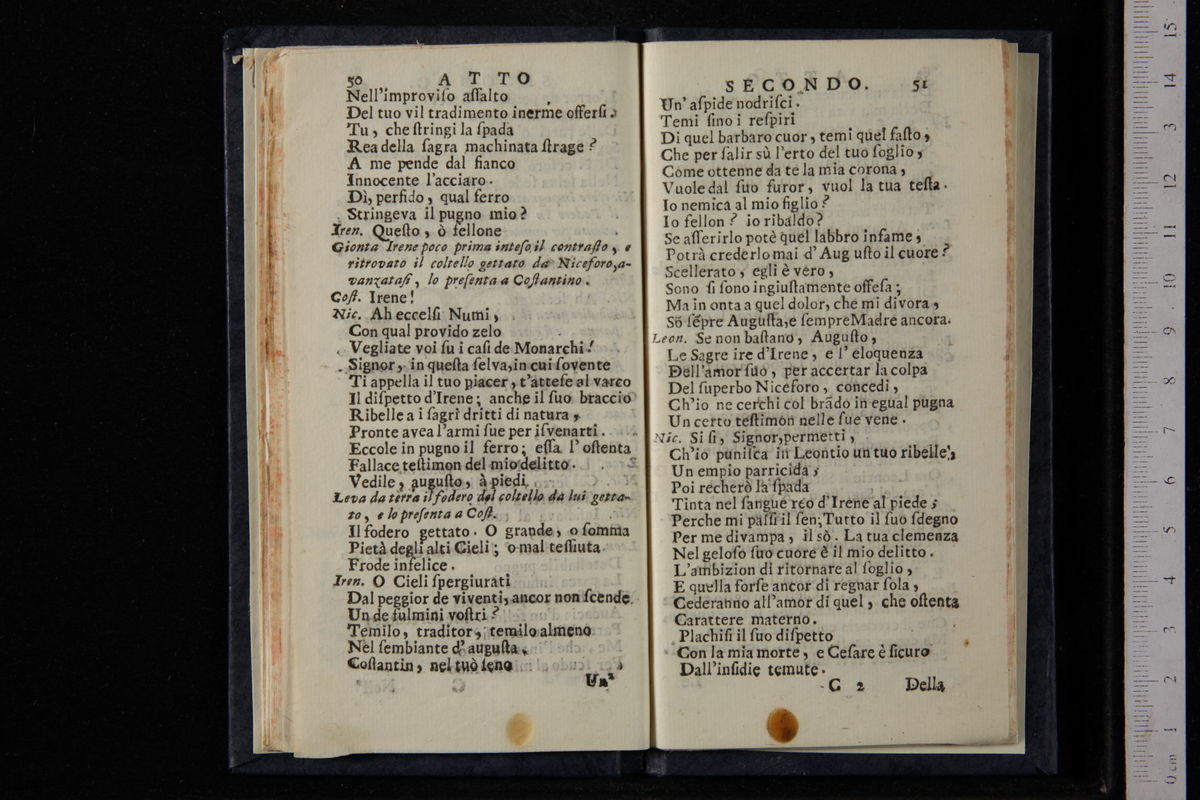 50 ATTO
Nell'improviſo aſſalto
Del tuo vil tradimento inerme offerſi.
Tu, che ſtringi la ſpada
Rea della ſagra machinata ſtrage?
A me pende dal fianco
Innocente l'acciaro.
Dì, perfido, qual ferro
Stringeva il pugno mio?
Iren. Queſto, ò fellone
Gionta Irene poco prima inteſo il contraſto, e
ritrovato il coltello gettato da Niceforo, a-
vanzataſi, lo preſenta a Coſtantino.
Coſt. Irene!
Nic. Ah eccelſi Numi,
Con qual provido zelo
Vegliate voi ſu i caſi de Monarchi!
Signor, in queſta ſelva, in cui ſovente
Ti appella il tuo piacer, t'atteſe al varco
Il diſpetto d'Irene; anche il ſuo braccio
Ribelle a i ſagri dritti di natura,
Pronte avea l'armi ſue per iſvenarti.
Eccole in pugno il ferro; eſſa l'oſtenta
Fallace teſtimon del mio delitto.
Vedile, auguſto, à piedi
Leva da terra il fodero del coltello da lui getta-
to, e lo preſenta a Coſt.
Il fodero gettato. O grande, o ſomma
Pietà degli alti Cieli; o mal teſſiuta
Frode infelice.
Iren. O Cieli ſpergiurati
Dal peggior de viventi, ancor non ſcende
Un de fulmini voſtri?
Temilo, traditor, temilo almeno
Nel ſembiante d'auguſta.
Coſtantin, nel tuò ſeno
Un'
SECONDO. 51
Un' aſpide nodriſci.
Temi ſino i reſpiri
Di quel barbaro cuor, temi quel faſto,
Che per ſalir sù l'erto del tuo ſoglio,
Come ottenne da te la mia corona,
Vuole dal ſuo furor, vuol la tua teſta.
Io nemica al mio figlio?
Io fellon? io ribaldo?
Se aſſerirlo potè quel labbro infame,
Potrà crederlo mai d'Aug uſto il cuore?
Scellerato, egli è vero,
Sono ſi ſono ingiuſtamente offeſa;
Ma in onta a quel dolor, che mi divora,
Sō ſēpre Auguſta, e ſempre Madre ancora.
Leon. Se non baſtano, Auguſto,
Le Sagre ire d'Irene, e l' eloquenza
Dell'amor ſuo, per accertar la colpa
Del ſuperbo Niceforo, concedi,
Ch'io ne cerchi col brādo in egual pugna
Un certo teſtimon nelle ſue vene.
Nic. Si ſi, Signor, permetti,
Ch'io puniſca in Leontio un tuo ribelle,
Un empio parricida;
Poi recherò la ſpada
Tinta nel ſangue reo d'Irene al piede;
Perche mi paſſi il ſen; Tutto il ſuo ſdegno
Per me divampa, il sò. La tua clemenza
Nel geloſo ſuo cuore è il mio delitto.
L'ambizion di ritornare al ſoglio,
E quella forſe ancor di regnar ſola,
Cederanno all'amor di quel, che oſtenta
Carattere materno.
Plachiſi il ſuo diſpetto
Con la mia morte, e Ceſare è ſicuro
Dall'inſidie temute.
C 2 Della
0 cm 1 2 3 4 5 6 7 8 9 10 11 12 13 14 15